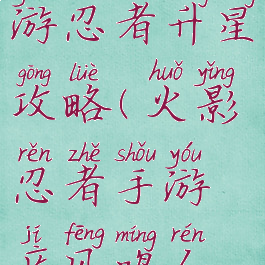 游忍者升星
gōng lüè huǒ yǐng
攻略(火影
rěn zhě shǒu yóu
忍者手游
jí fēng míng rén
疾风鸣人